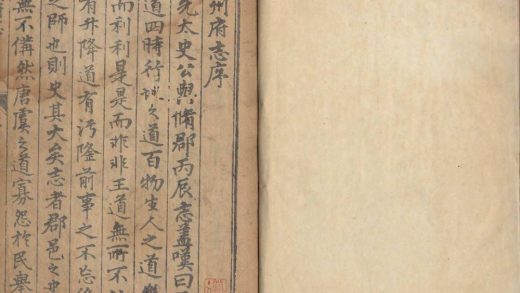 州府志序
先太史公與脩郡丙辰志蓋嘆曰
道四時行城之道百物生人之道
而利利是是而非非王道無所不
有升降道有污隆前事之不忘後
之師也則史其大矣志者郡邑之史
無不儔然唐虞之道寡怨於民舉